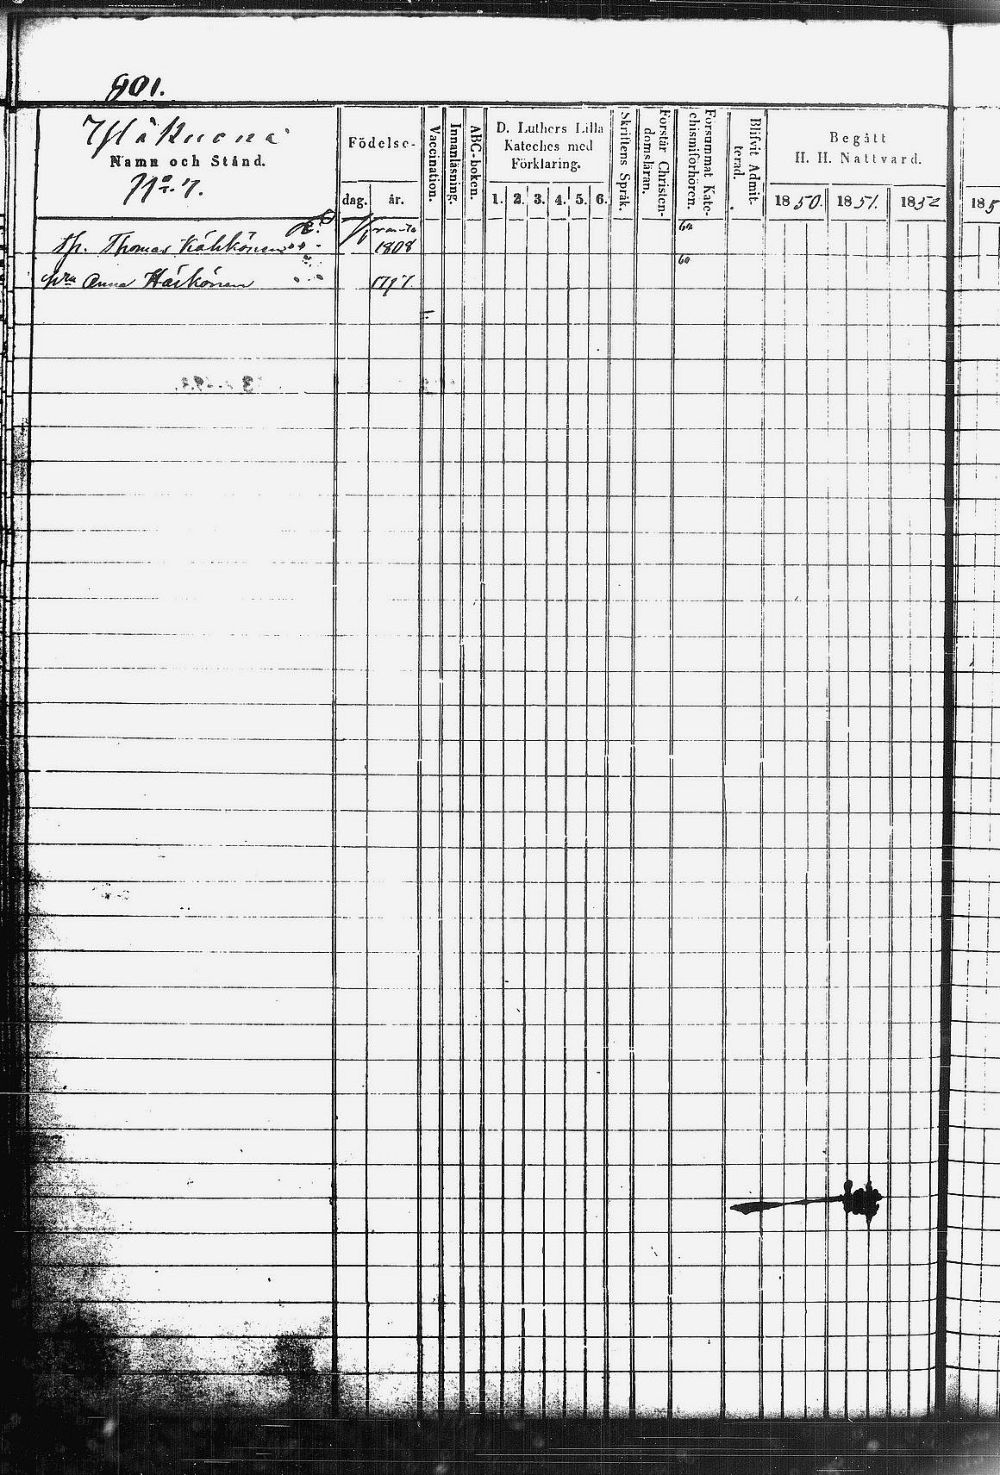 901.
Namn och Stånd.
N:o 7.
Födelse-
dag. år.
Vaccination.
Innanläsning.
ABC-boken.
D. Luthers Lilla
Kateches med
Förklaring.
1. 2. 3. 4. 5. 6.
Skriftens Språk.
Förstår Christen-
domsläran.
Försummat Kate-
chismiförhören.
Blifvit Admit-
terad.
Begått
H. H. Nattvard.
1850. 1851. 1852
185
Thomas 1808
60
Anna Härkönen 1797
60